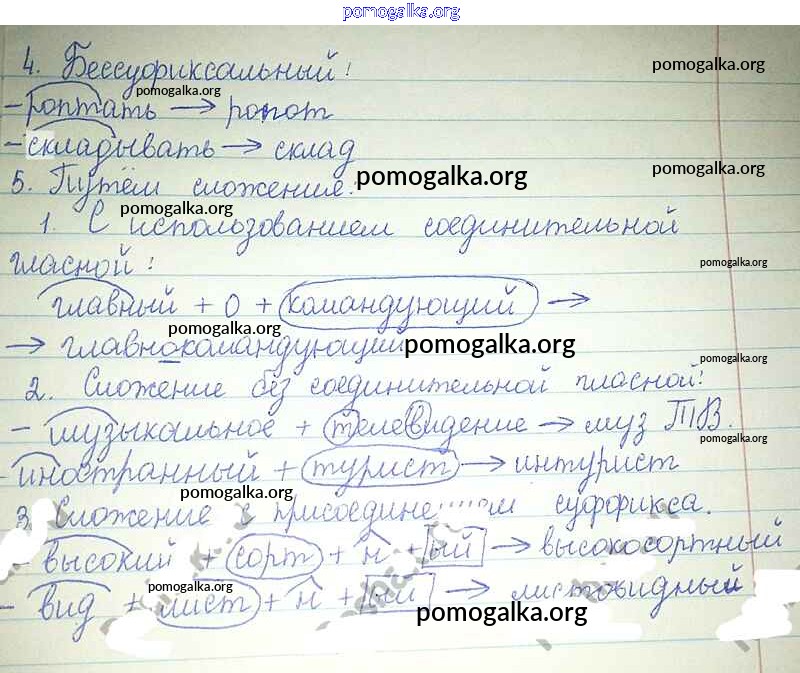 pomogalka.org
4. Бессуфиксальный:
pomogalka.org
pomogalka.org
- роптать → ропот
pomogalka.org
- складывать → склад
5. Путём сложение:
pomogalka.org
pomogalka.org
pomogalka.org
1. С использованием соединительной
гласной:
pomogalka.org
главный + о + командующий →
pomogalka.org
→ главнокомандующий
pomogalka.org
pomogalka.org
2. Сложение без соединительной гласной:
- музыкальное + телевидение → муз ТВ.
pomogalka.org
- иностранный + турист → интурист
pomogalka.org
3. Сложение с суффикса.
- высокий + сорт + н + ый → высокосортный
pomogalka.org
- вид + лист + н + ый → листовидный
pomogalka.org